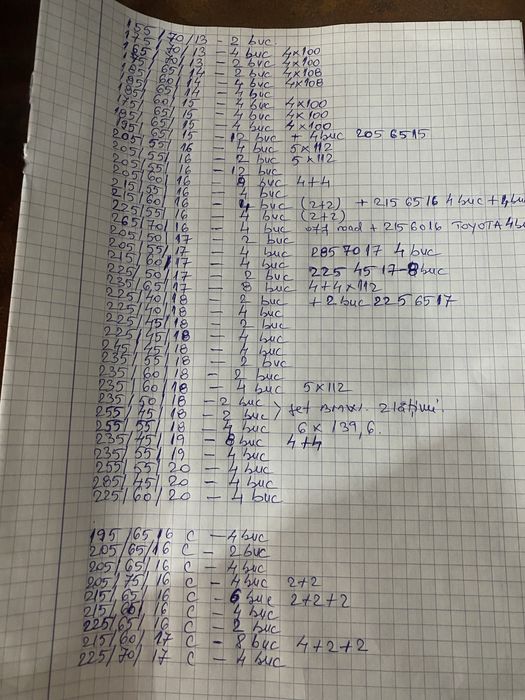 155/70/13 - 2 buc.
175/70/13 - 4 buc 4x100
165/70/13 - 2 buc 4x100
175/65/14 - 2 buc 4x108
185/60/14 - 4 buc 4x108
195/65/14 - 4 buc
175/60/15 - 4 buc 4x100
185/65/15 - 4 buc 4x100
195/65/15 - 4 buc 4x100
205/65/15 - 12 buc + 4buc 2056515
205/55/16 - 4 buc 5x112
205/55/16 - 2 buc 5x112
205/55/16 - 12 buc
205/60/16 - 8 buc 4+4
215/55/16 - 4 buc
215/60/16 - 4 buc (2+2) + 2156516 4buc + 4buc
225/55/16 - 4 buc (2+2)
265/70/16 - 4 buc off road + 2156016 TOYOTA 4b
205/50/17 - 2 buc
205/55/17 - 4 buc 2857017 4buc
215/60/17 - 4 buc
225/50/17 - 2 buc 2254517-8buc
235/65/17 - 8 buc 4+4x112
225/40/18 - 2 buc + 2buc 2256517
225/40/18 - 4 buc
225/45/18 - 2 buc
225/45/18 - 4 buc
245/45/18 - 4 buc
235/55/18 - 2 buc
235/60/18 - 2 buc
235/60/18 - 4 buc 5x112
235/50/18 - 2 buc
255/45/18 - 2 buc > set BMW.
255/55/18 - 4 buc 6x139,6.
235/45/19 - 8buc 4+4
235/55/19 - 4 buc
255/55/20 - 4 buc
285/45/20 - 4 buc
225/60/20 - 4 buc
195/65/16 C - 4buc
205/65/16 C - 2buc
205/65/16 C - 4buc
205/75/16 C - 4buc 2+2
215/65/16 C - 6buc 2+2+2
215/60/16 C - 4 buc
225/65/16 C - 2 buc
215/60/17 C - 8 buc 4+2+2
225/70/17 C - 4 buc